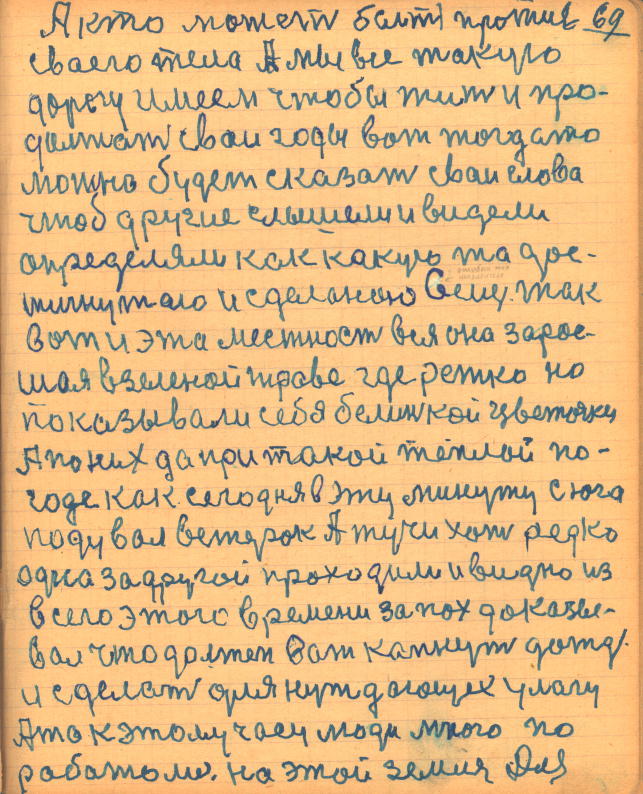 А кто может быть против 69
сваего тела А мы все такую
дорогу имеем чтобы жит и про-
должат сваи годы вот тогда то
можно будет сказат сваи слова
чтоб другие слышели и видели
определяли как какую та дос-
тигнутаю и сделаною Вешу. так
вот и эта местност вся она зарос-
шая в зеленой траве где ретко но
показывали себя белинкой цветочки
А по них да при такой теплой по-
годе как сегодня в эту минуту с юга
подувал ветерок А тучи хот редко
одна за другой проходили и видно из
всего этого времени запох доказы-
вал что должен вот капнут дожд.
и сделат для нуждающех улагу
А так к этому часу люди много по
работали. на этой земли Для